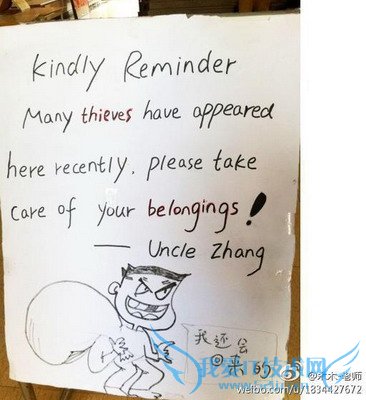 Kindly Reminder
Many thieves have appeared
here recently. please take
care of your belongings!
— Uncle Zhang
我还会
回来的
weibo.com/u/1834427672